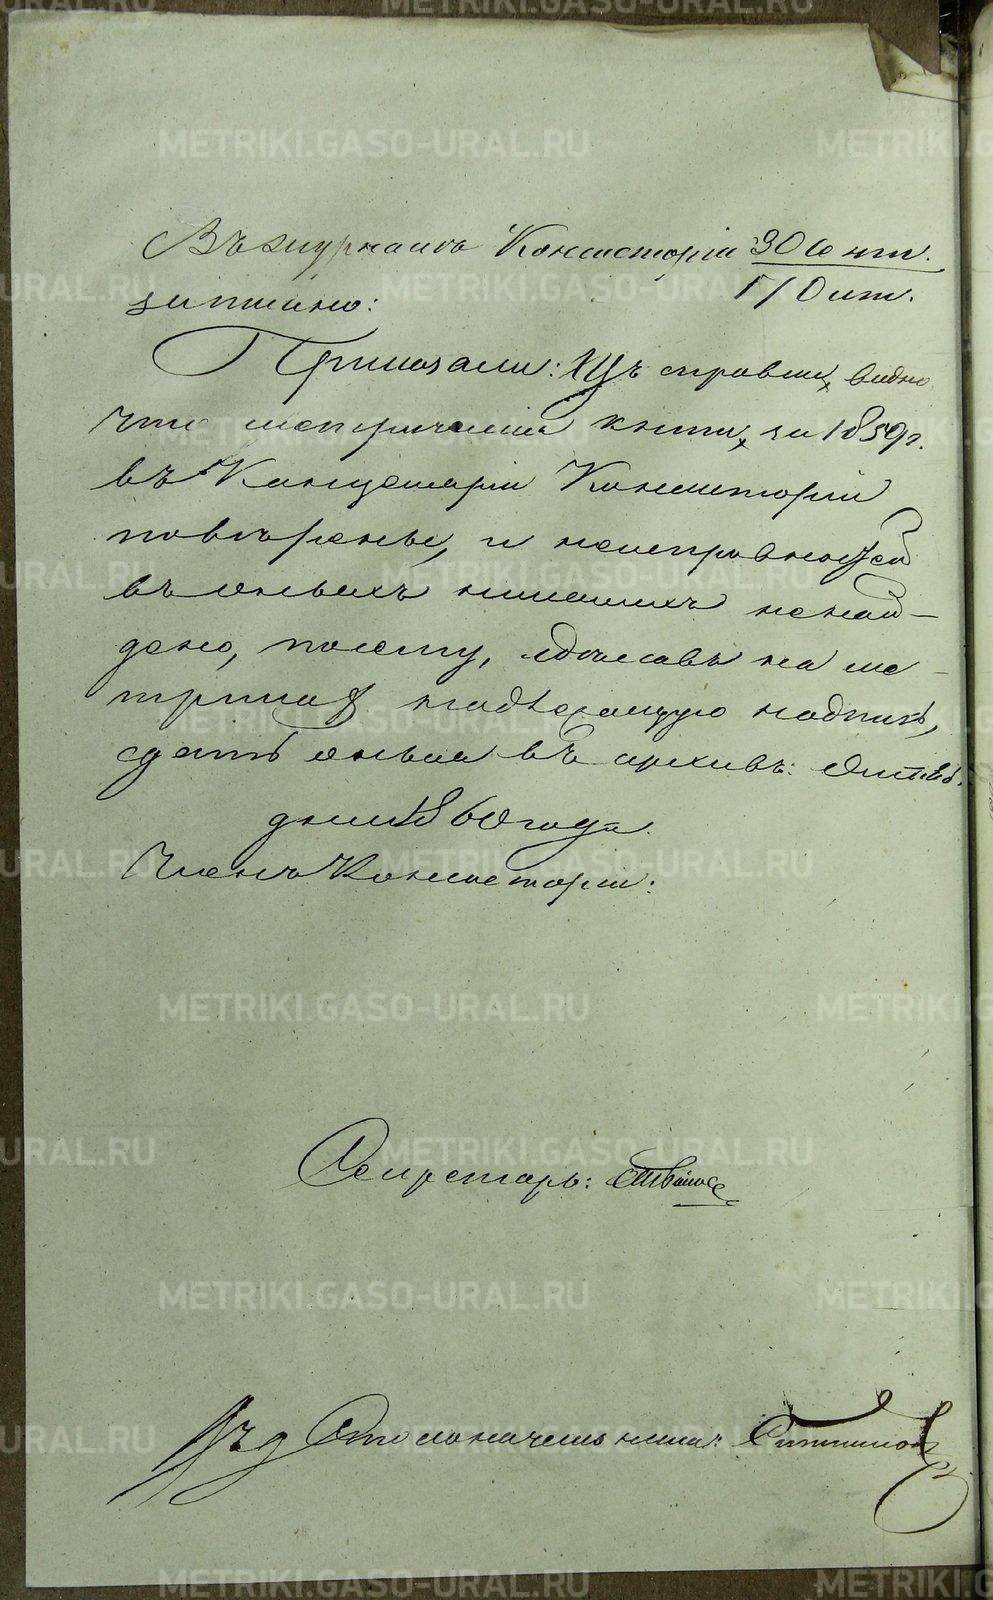 Въ журналѣ Консисторіи 30 Сент.
17 Окт.
записано:
Приказали: Изъ справки видно
что метрическія книги за 1859 г.
въ Канцеляріи Консисторіи
повѣрены, и неисправностей
въ оныхъ никакихъ ненай-
дено, посему, сдѣлавъ на ме-
трикахъ надлежащую надпись,
сдать оныя въ архивъ.
дня 1860 года.
Членъ Консисторіи:
Секретарь:
Столоначальника:
METRIKI.GASO-URAL.RU